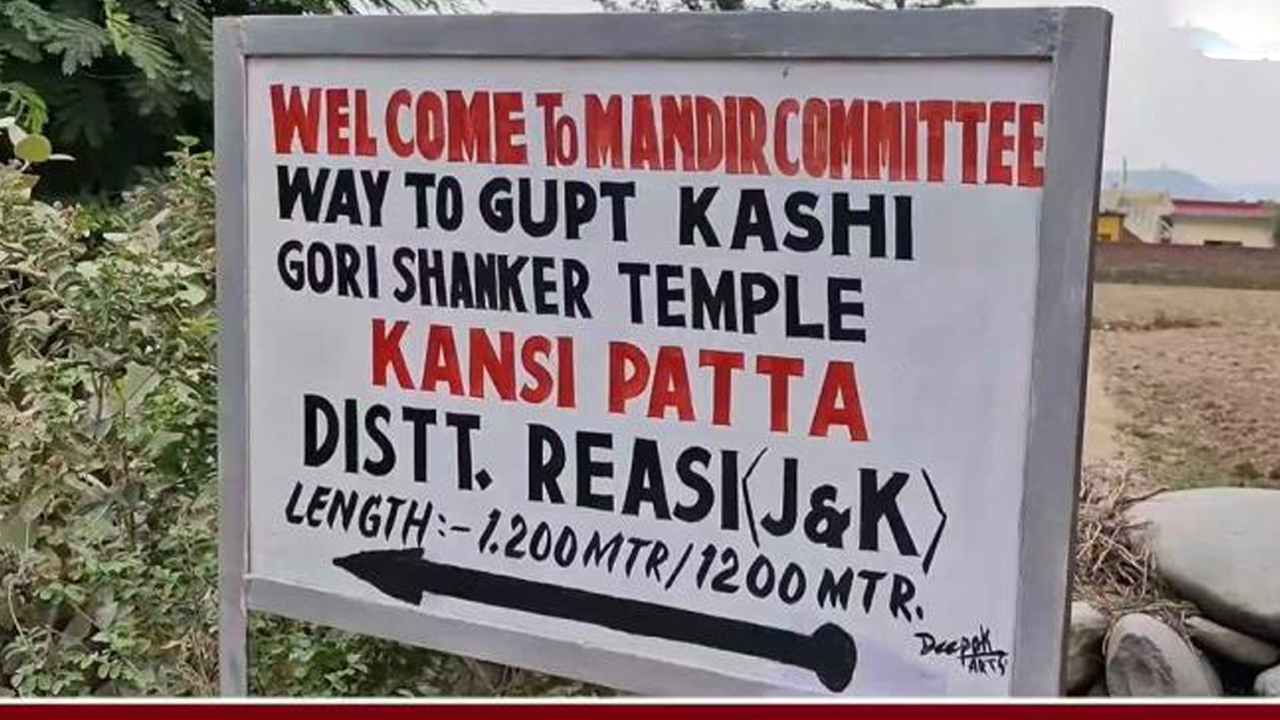 WELCOME TO MANDIR COMMITTEE
WAY TO GUPT KASHI
GORI SHANKER TEMPLE
KANSI PATTA
DISTT. REASI (J&K)
LENGTH :- 1.200 MTR/1200 MTR.
Deepak
ARTS